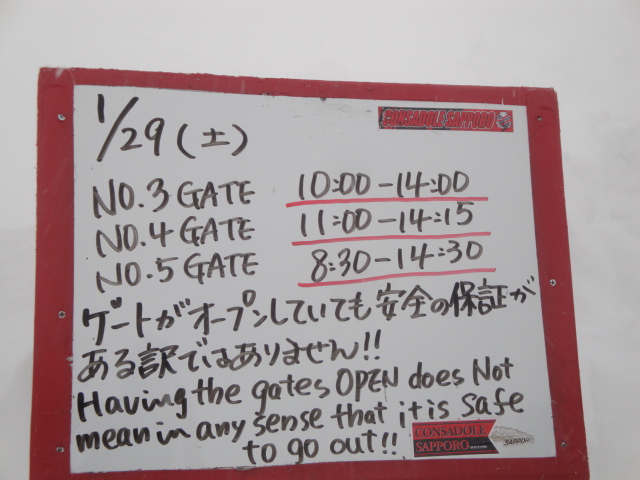 1/29(土)
CONSADOLE SAPPORO
NO.3 GATE 10:00-14:00
NO.4 GATE 11:00-14:15
NO.5 GATE 8:30-14:30
ゲートがオープンしていても安全の保証が
ある訳ではありません!!
Having the gates OPEN does Not
mean in any sense that it is safe
to go out!!
CONSADOLE
SAPPORO
SAPPOR